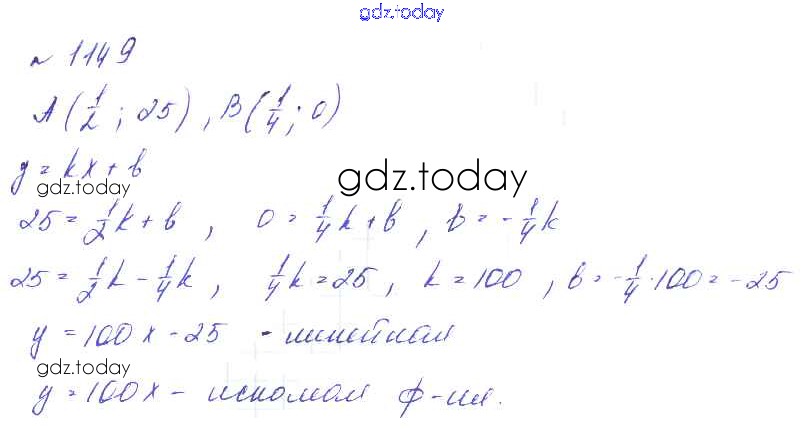 gdz.today
№ 1149
A(1/2; 25), B(1/4; 0)
y = kx + b
gdz.today
gdz.today
25 = 1/2k + b, 0 = 1/4k + b, b = -1/4k
25 = 1/2k - 1/4k, 1/4k = 25, k = 100, b = -1/4·100 = -25
y = 100x - 25 - линейная
gdz.today
y = 100x - искомая ф-ия.